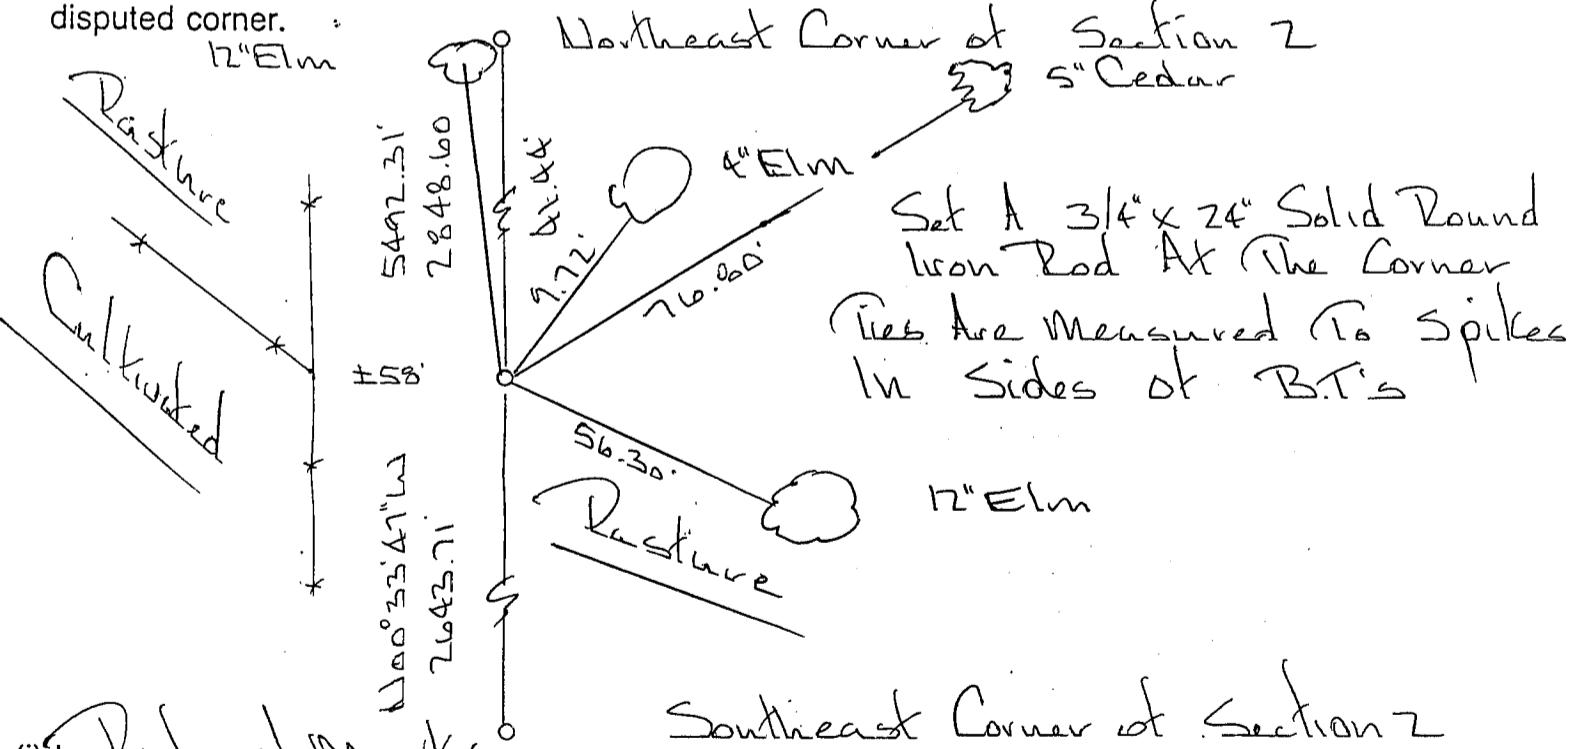 disputed corner.
12" Elm
Northeast Corner of Section 2
5" Cedar
Pasture
5492.31'
2848.60
41.44'
4" Elm
9.72'
76.80'
Set A 3/4" x 24" Solid Round
Iron Rod At The Corner
Ties Are Measured To Spikes
In Sides of B.T's
Cultivated
±58'
56.30'
12" Elm
Pasture
N00°33'47"W
2643.71'
Southeast Corner of Section 2